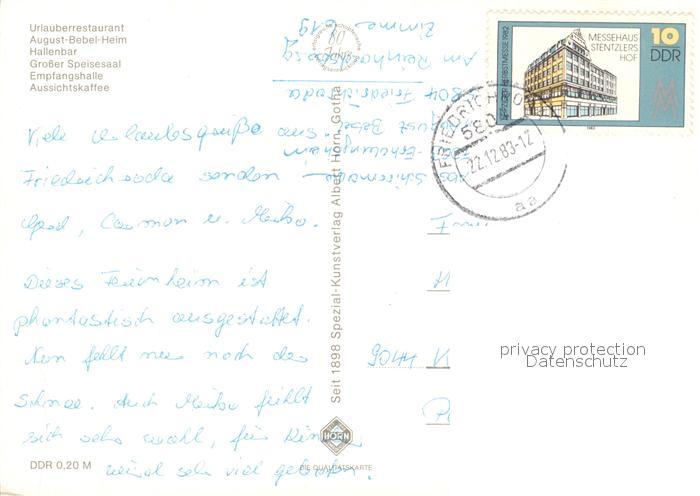 Urlauberrestaurant
August-Bebel-Heim
Hallenbar
Großer Speisesaal
Empfangshalle
Aussichtskaffee
Viele Urlaubsgrüße aus
Friedrichroda senden
Gerd, Carmen u. Meiko.
Dieses Ferienheim ist
phantastisch ausgestattet.
Nun fehlt nur noch der
Schnee. Auch Meiko fühlt
sich sehr wohl, für Kinder
wird sehr viel geboten.
DDR 0,20 M
Seit 1898 Spezial-Kunstverlag Albert Horn, Gotha
HORN
DIE QUALITÄTSKARTE
Erholungsheim
August Bebel
5804 Friedrichroda
Am Reinhardsberg
Zimmer 619
9044 K
LEIPZIGER HERBSTMESSE 1982
MESSEHAUS
STENTZLERS
HOF
10
DDR
1982
FRIEDRICHRODA
580
22.12.83-17
aa
privacy protection
Datenschutz